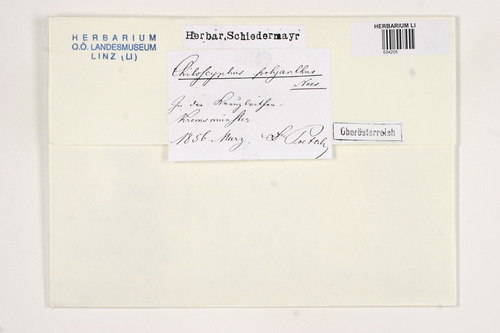 HERBARIUM
O.Ö. LANDESMUSEUM
LINZ (LI)
Herbar, Schiedermayr
HERBARIUM LI
Chiloscyphus polyanthus
Nees
In der
Kremsmünster.
1856 März. Dr Poetsch
Oberösterreich